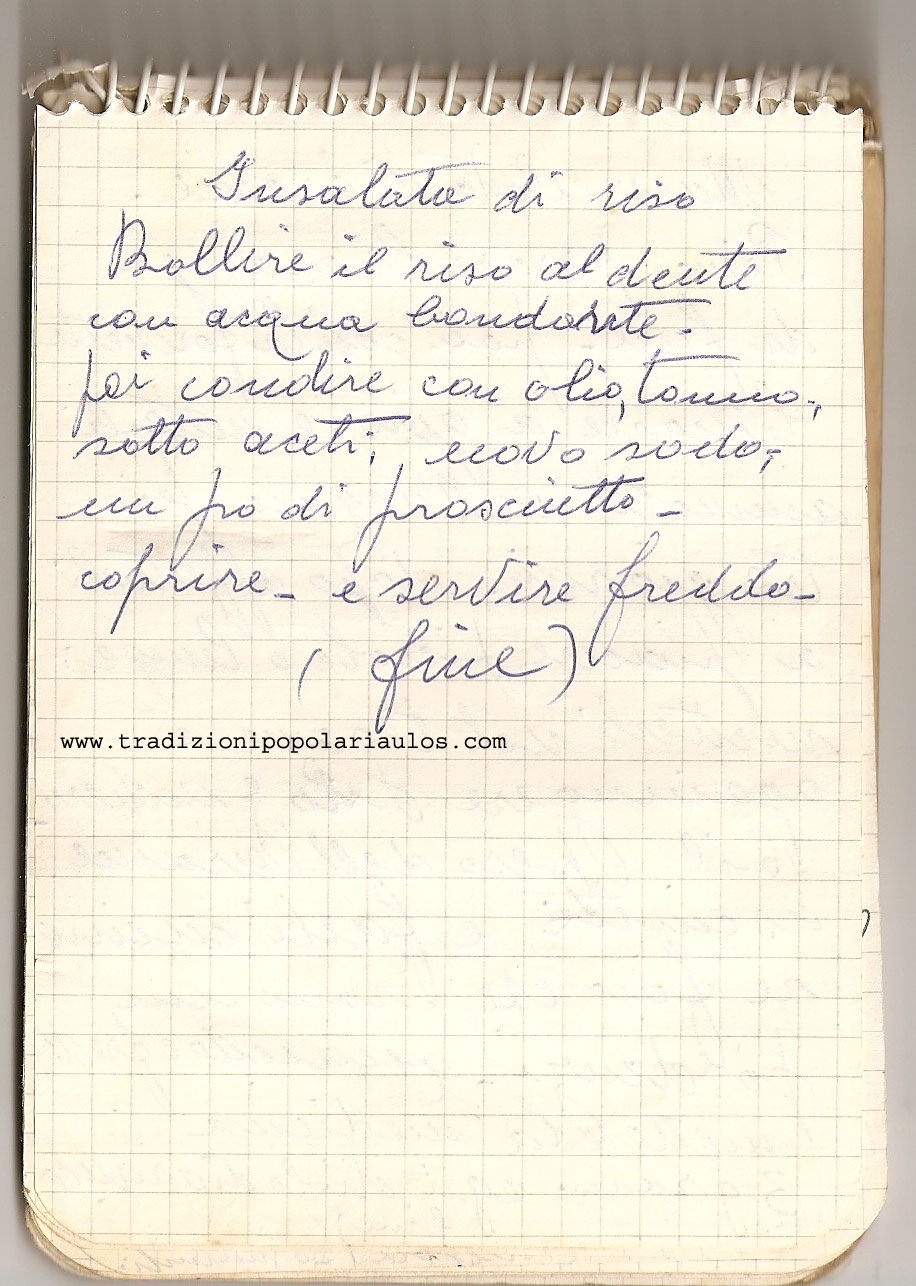 Insalata di riso
Bollire il riso al dente
con acqua bondante.
poi condire con olio, tonno,
sotto aceti, uovo sodo,
un po di prosciutto -
coprire - e servire freddo -
( fine )
www.tradizionipopolariaulos.com